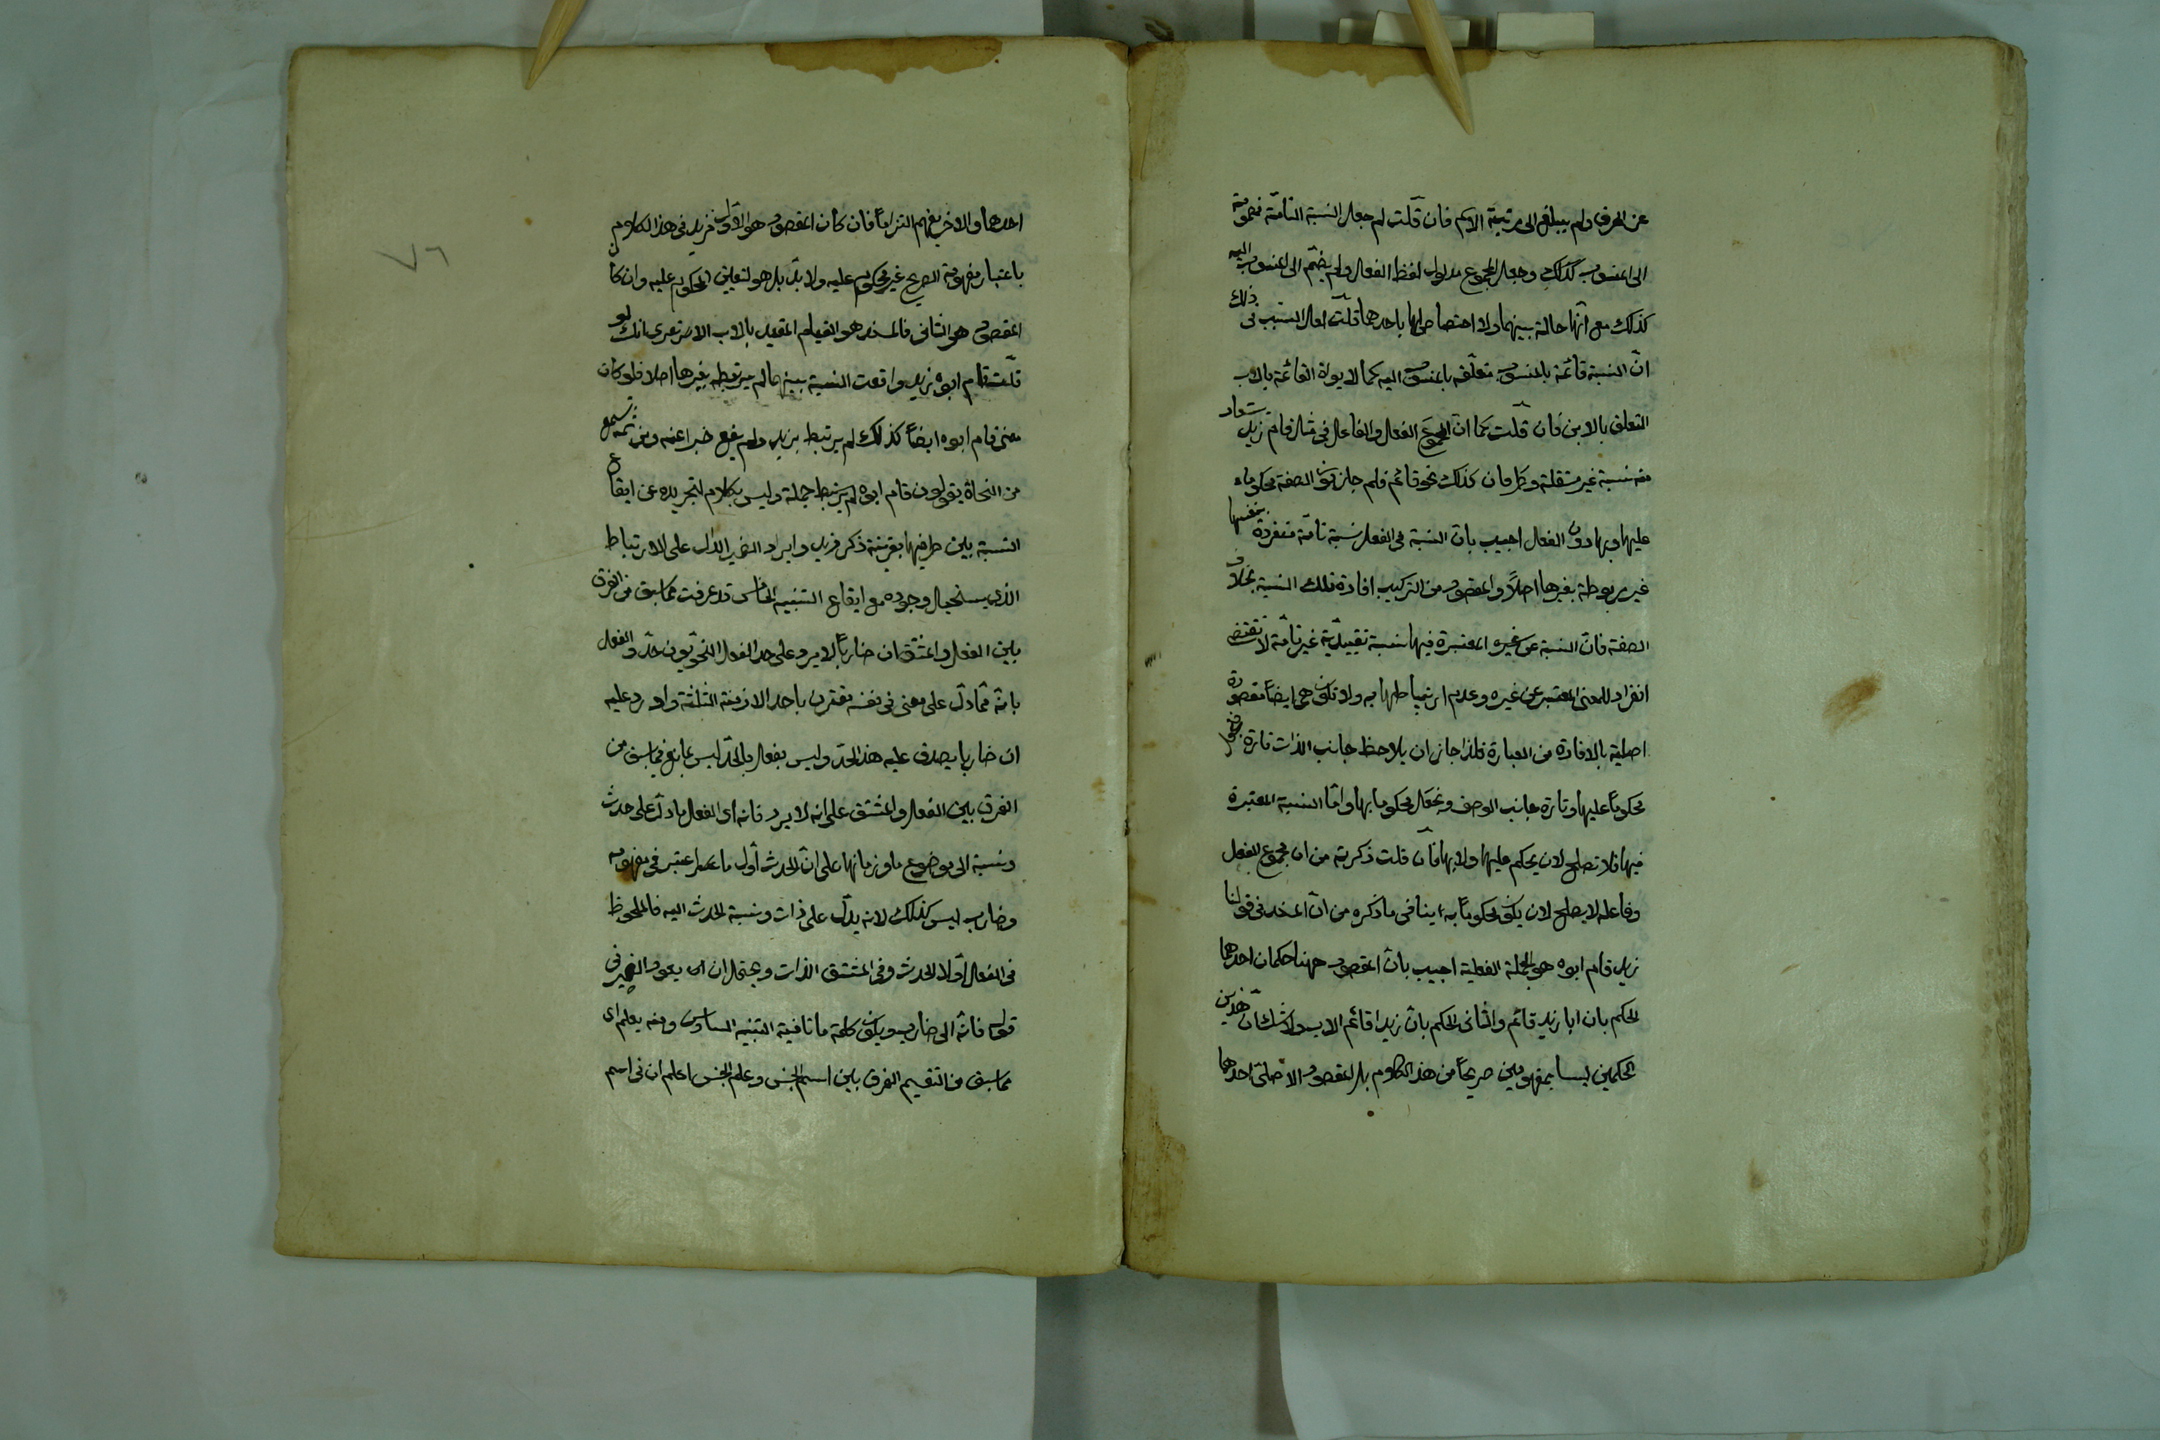 عن الحرف ولم يبلغ الى مرتبة الاسم فان قلت لم جعل النسبة التامة مفهومة
الى المنسوب كذلك وجعل المجموع مدلول لفظ الفعل ولم يضم الى المنسوب اليه
كذلك مع انها حالة بينهما ولا اختصاص لها باحدهما قلت لعل السبب فى ذلك
ان النسبة قائمة بالمنسوب متعلقه بالمنسوب اليه كما الابوة القائمة بالاب
المتعلق بالابن فان قلت كما ان المجموع الفعل والفاعل فى مثال قام زيد
منه نسبة غير مستقلة وكل فان كذلك نحو قائم فلم جاز كون الصفة محكوما
عليها وبها دون الفعل اجيب بان النسبة فى الفعل نسبة تامة منفردة بنفسها
غير مربوطة بغيرها اصلا والمقصود من التركيب افادة تلك النسبة بخلاف
الصفة فان النسبة المعتبرة فيها نسبة تقييدية غير تامة لا تقتضى
انفراد المعنى المعتبر عن غيره وعدم ارتباطها به ولا تكون هى ايضا مقصودة
اصلية بالافادة من العبارة فلذا جاز ان يلاحظ جانب الذات تارة فتجعل
محكوما عليها وتارة جانب الوصف وتجعل محكوما بها واما النسبة المعتبرة
فيها فلا تصلح لان يحكم عليها ولا بها فان قلت ذكرته من ان مجموع الفعل
وفاعله لا يصلح لان يكون محكوما به ينافى ما ذكره من ان المسند فى قولنا
زيد قام ابوه هو الجملة الفعلية اجيب بان المقصود ههنا حكمان احدهما
الحكم بان ابا زيد قائم والثانى الحكم بان زيدا قائم الاب ولا شك ان هذين
الحكمين ليسا بمفهومين صريحا من هذا الكلام بل المقصود الاصلى احدهما
٧٦
احدهما والاخر يفهم التزاما فان كان المقصود هو الاول فزيد فى هذا الكلام
باعتبار مفهومه الصريح غير محكوم عليه ولا به بل هو لتعيين المحكوم عليه وان كان
المقصود هو الثانى فالمسند هو القيام المقيد بالاب الا ترى انك لو
قلت قام ابو زيد واقعت النسبة بينهما لم يرتبط بغيرها اصلا فلو كان
معنى قام ابوه ايضا كذلك لم يرتبط بزيد ولم يقع خبرا عنه ومن ثمه تسمع
من النحاة يقولون قام ابوه جملة وليس بكلام لتجريده عن ايقاع
النسبة بين طرفيها بقرينة ذكر زيد وايراد الضمير الدال على الارتباط
الذى يستحيل وجوده مع ايقاع التنبيه الخامس قد عرفت مما سبق من الفرق
بين الفعل والمشتق ان ضاربا لا يرد على حد الفعل النحويون حدوا الفعل
بانه ما دل على معنى فى نفسه مقترن باحد الازمنة الثلثة واورد عليه
ان ضاربا يصدق عليه هذا الحد وليس بفعل فالحد ليس بمانع فما سبق من
الفرق بين الفعل والمشتق علم انه لا يرد فانه اى الفعل ما دل على حدث
ونسبة الى موضوع ما وزمانها على ان الحدث اول ما اعتبر فى مفهومه
وضارب ليس كذلك لانه يدل على ذات ونسبة الحدث اليه فالملحوظ
فى الفعل اولا الحدث وفى المشتق الذات ويحتمل ان يعود الضمير فى
قوله فانه الى ضارب ويكون كلمة ما نافية التنبيه السادس ومنه يعلم اى
مما سبق من التقسيم الفرق بين اسم الجنس وعلم الجنس اعلم ان فى اسم